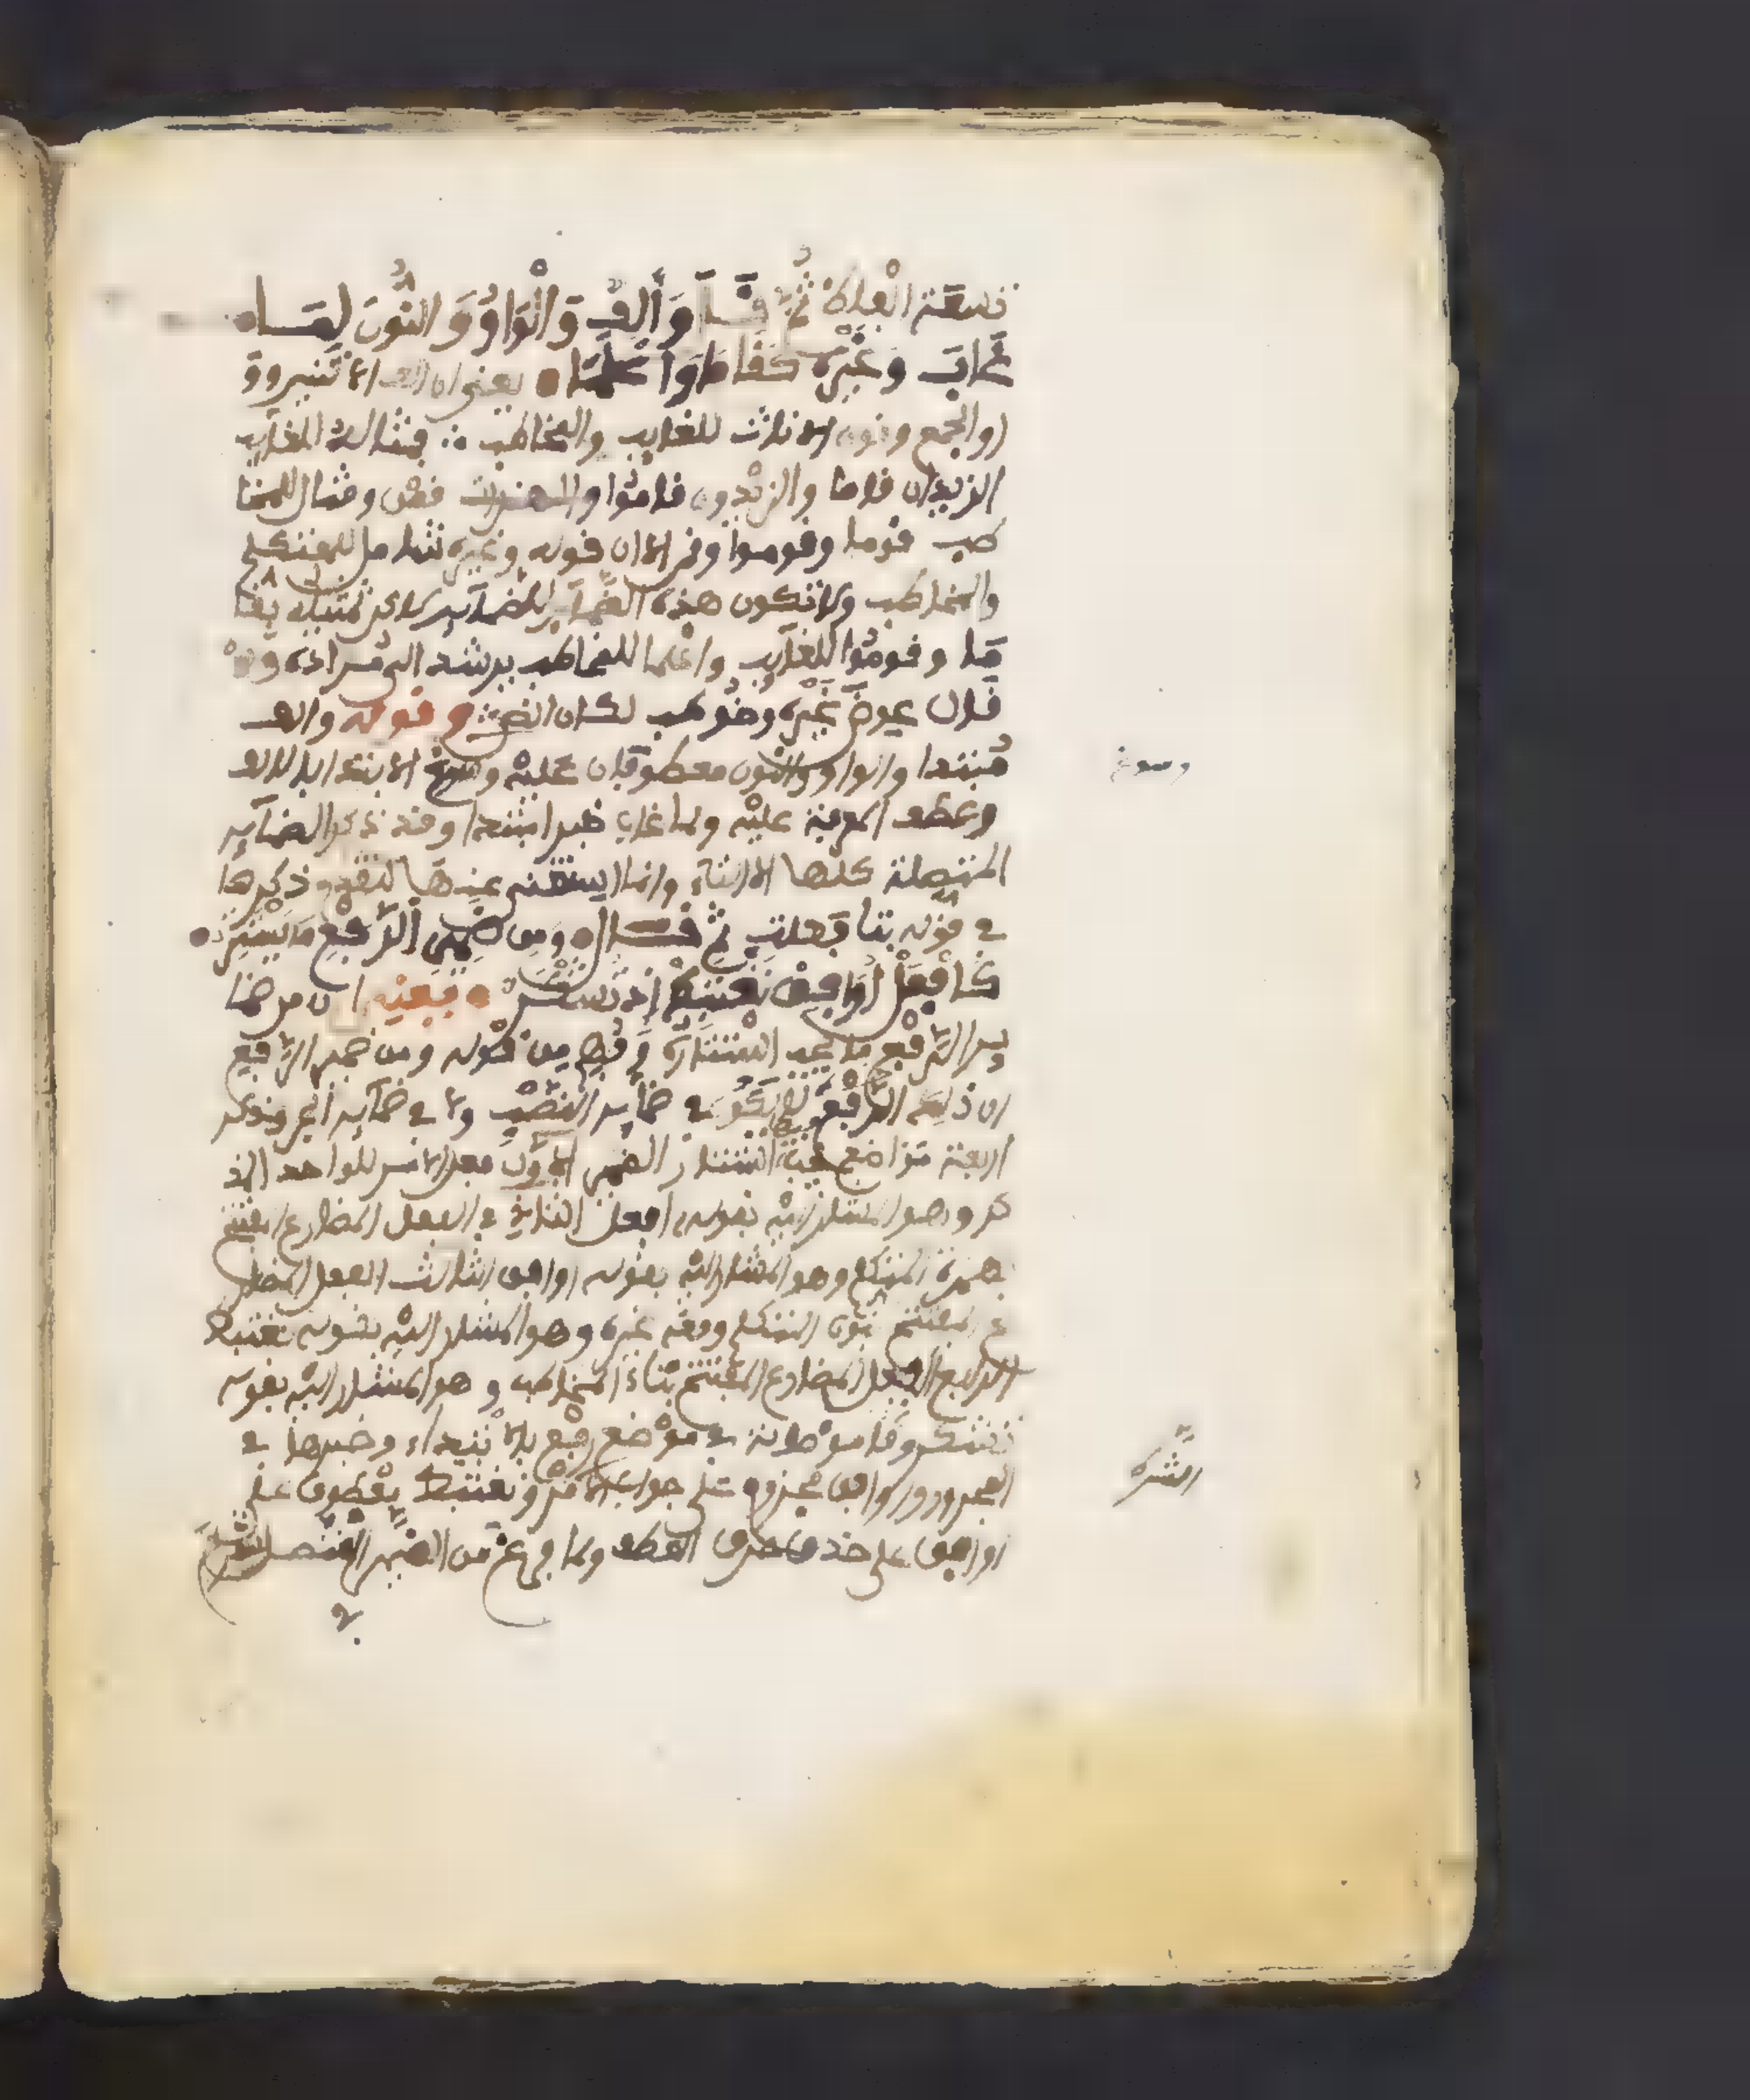 ثم قال وألف والواو والنون لما
غاب وغيره كقاما واعلما يعني ان الف الاثنين وو
او الجمع ونون الاناث للغايب والمخاطب فمثاله للغايب
الزيدان قاما والزيدون قاموا والهندات قمن ومثال المخا
طب قوما وقوموا وقمن الا ان قوله وغيره شامل للمتكلم
والمخاطب ولا تكون هذه الضماير للمتكلم تمثيله بقا
ما وقوموا للغايب واعلما للمخاطب يرشد الى مراده ولو
قال عوض غيره وخوطب لكان انص قوله والف
مبتدا والواو والنون معطوفان عليه وسوغ الابتدا بالالف
وعطف المعرفة عليه ولما غاب خبر ابتدا وقد ذكر الضماير
المتصلة كلها الا التاء وانما استغنى عنها لتقدم ذكرها
في قوله بتا فعلت ثم قال ومن ضمير الرفع ما يستتر
كافعل أوافق نغتبط إذ تشكر فبعنيه ان من ضما
ير الرفع ما يجب استتاره وفهم من قوله ومن ضمير الرفع
ان ذلك الرفع لا يكون في ضماير النصب ولا في ضماير الجر وذكر
اربعة مواضع يجب استتار الضمير الاول فعل الامر للواحد المذ
كر وهو المشار اليه بقوله افعل الثاني في الفعل المضارع المفتتح
بهمزة المتكلم وهو المشار اليه بقوله اوافق الثالث الفعل المضار
ع المفتتح بنون المتكلم ومعه غيره وهو المشار اليه بقوله نغتبط
الرابع الفعل المضارع المفتتح بتاء المخاطب وهو المشار اليه بقوله
تشكر وما موصولة في موضع رفع بالابتداء وخبرها في
المجرور واوافق مجزوم على جواب الامر ونغتبط معطوف على
اوافق على حذف حرف العطف ولما فرغ من الضمير المتصل
وسوغ